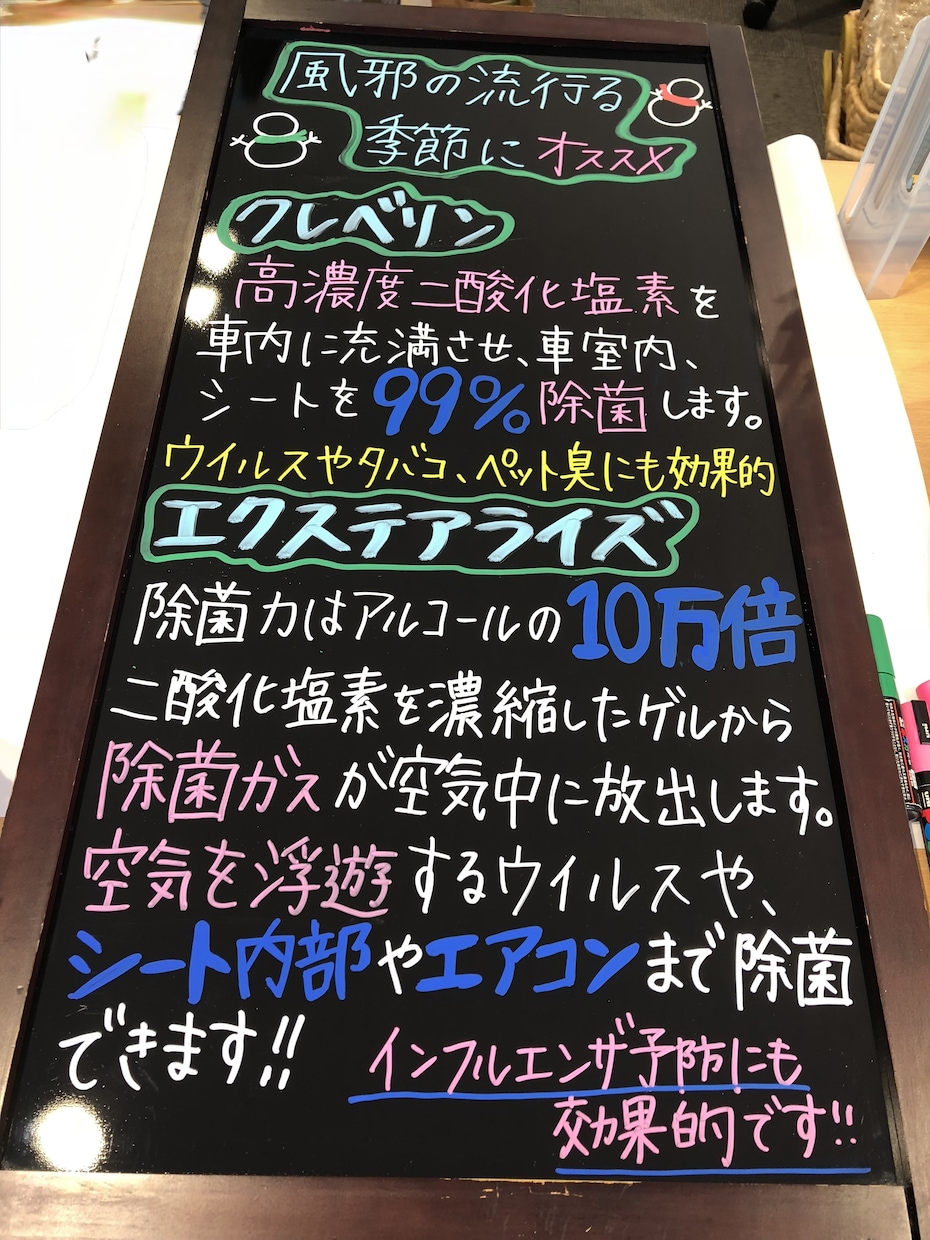 風邪の流行る
季節にオススメ
クレベリン
高濃度二酸化塩素を
車内に充満させ、車室内、
シートを99%除菌します。
ウイルスやタバコ、ペット臭にも効果的
エクステアライズ
除菌力はアルコールの10万倍
二酸化塩素を濃縮したゲルから
除菌ガスが空気中に放出します。
空気を浮遊するウイルスや、
シート内部やエアコンまで除菌
できます!!
インフルエンザ予防にも
効果的です!!